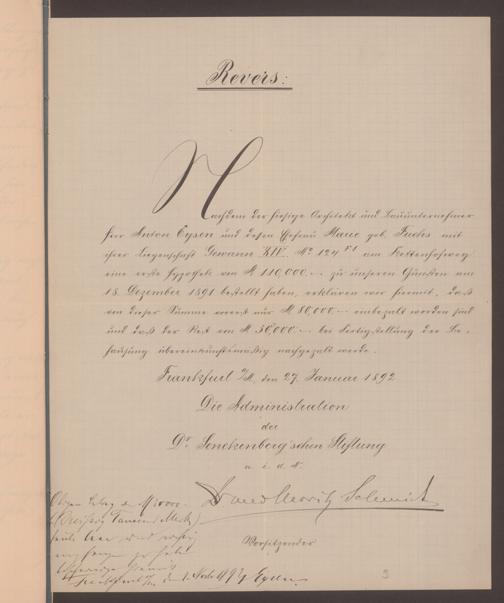 Revers:
Nachdem der hiesige Architekt und Bauunternehmer
Herr Anton Eysen und dessen Ehefrau Marie geb. Fuchs mit
ihrer Liegenschaft Gewann XIV. No 124 am Kettenhofweg
eine erste Hypothek von M 110,000.-- zu unseren Gunsten am
18. Dezember 1891 bestellt haben, erklären wir hiermit, daß
von dieser Summe vorerst nur M 80,000.-- einbezalt worden sind
und daß der Rest von M 30,000.-- bei Fertigstellung der Be-
hausung übereinkunftsmäßig nachgezalt werde.
Frankfurt a/M, den 27. Januar 1892
Die Administration
der
Dr. Senckenberg'schen Stiftung
u. i. d. N.
Dr med Moritz Schmidt
Vorsitzender
Obigen Betrag von M 30000.-
(Dreißig Tausend Mark)
heute
empfangen zu haben
bescheinigt hiermit
Frankfurt a/M, den 1. 1892 Eysen